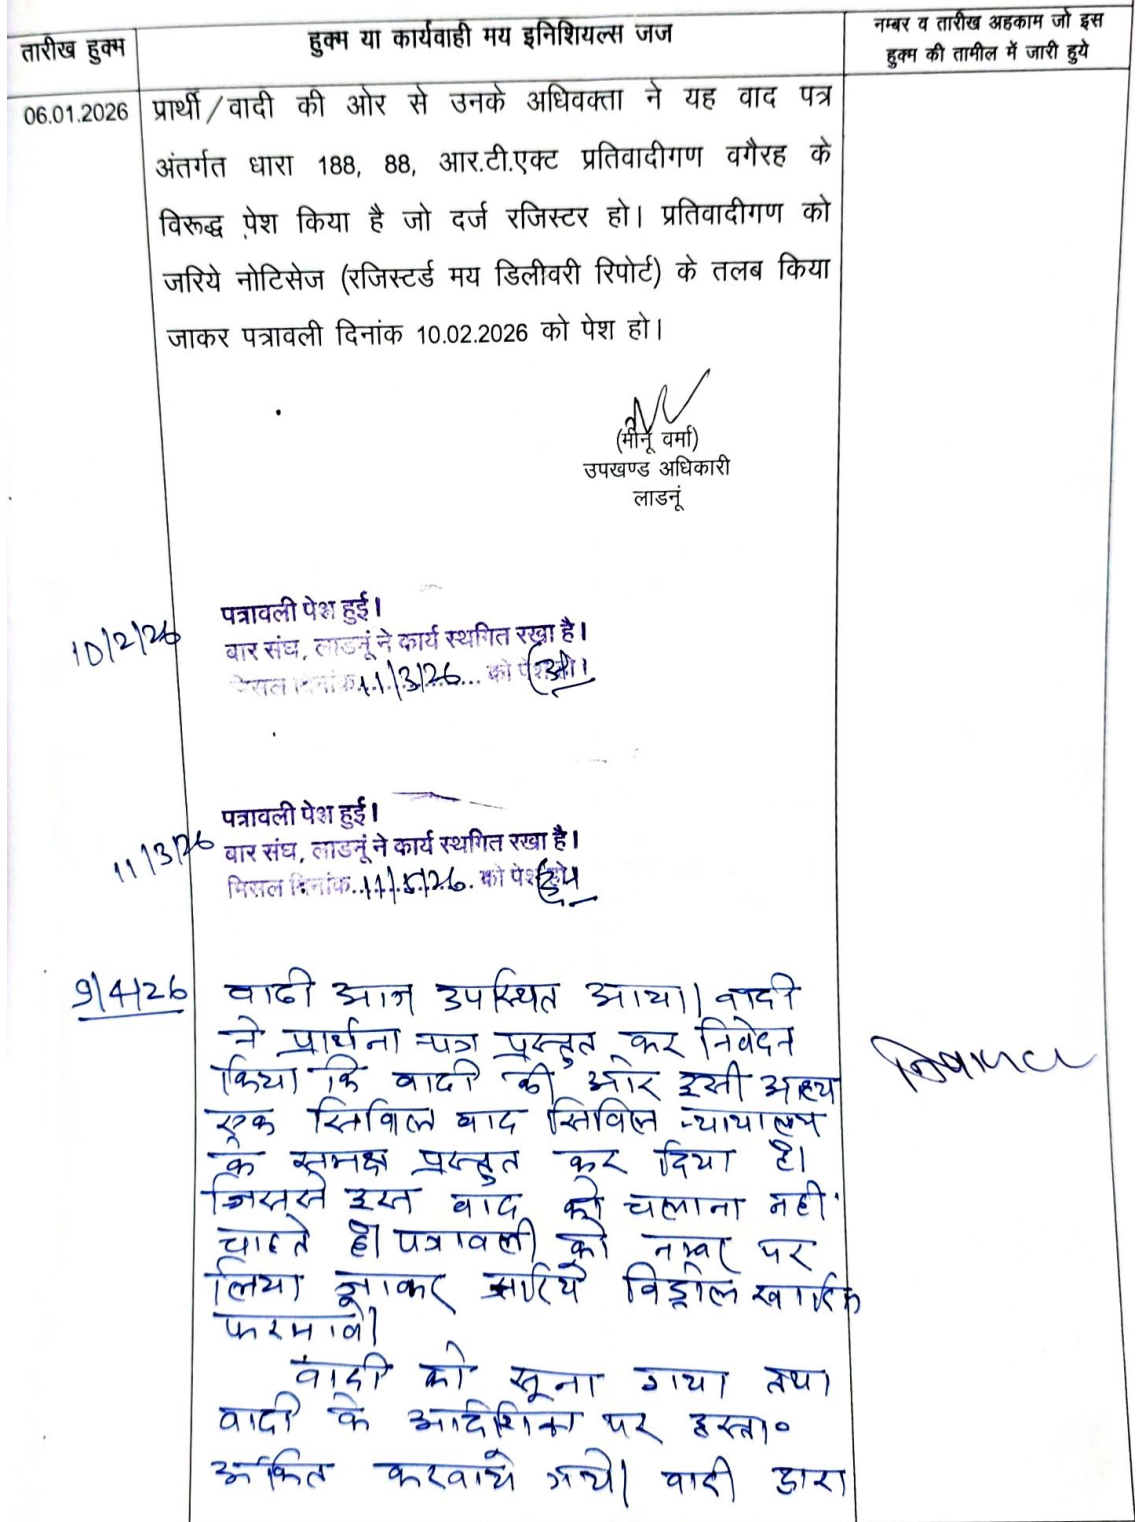 तारीख हुक्म
हुक्म या कार्यवाही मय इनिशियल्स जज
नम्बर व तारीख अहकाम जो इस
हुक्म की तामील में जारी हुये
06.01.2026
प्रार्थी/वादी की ओर से उनके अधिवक्ता ने यह वाद पत्र
अंतर्गत धारा 188, 88, आर.टी.एक्ट प्रतिवादीगण वगैरह के
विरूद्ध पेश किया है जो दर्ज रजिस्टर हो। प्रतिवादीगण को
जरिये नोटिसेज (रजिस्टर्ड मय डिलीवरी रिपोर्ट) के तलब किया
जाकर पत्रावली दिनांक 10.02.2026 को पेश हो।
(मीनू वर्मा)
उपखण्ड अधिकारी
लाडनूं
10/2/26
पत्रावली पेश हुई।
बार संघ, लाडनूं ने कार्य स्थगित रखा है।
मिसल दिनांक 11/3/26 को पेश हो।
11/3/26
पत्रावली पेश हुई।
बार संघ, लाडनूं ने कार्य स्थगित रखा है।
मिसल दिनांक को पेश
9/4/26
वादी आज उपस्थित आया। वादी
ने प्रार्थना पत्र प्रस्तुत कर निवेदन
किया कि वादी की ओर इसी
एक सिविल वाद सिविल न्यायालय
के समक्ष प्रस्तुत कर दिया है।
जिससे इस वाद को चलाना नहीं
चाहते है। पत्रावली को नम्बर पर
लिया जाकर विड्रोल खारिज
फरमावे।
वादी को सूना गया तथा
वादी के आदेशिका पर हस्ता०
अंकित करवाये गये। वादी द्वारा